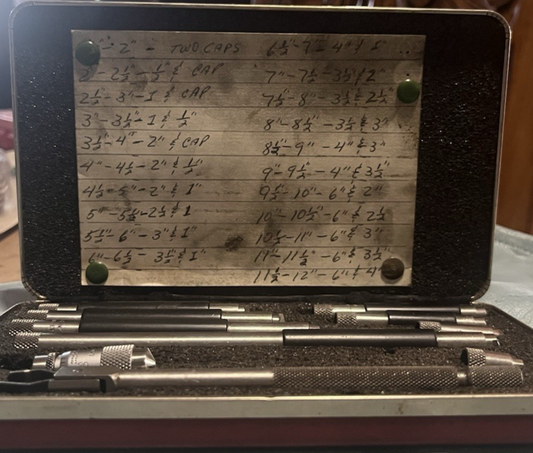 2" - TWO CAPS
2" - 2 1/2 - 1/2" & CAP
2 1/2 - 3" - 1 & CAP
3" - 3 1/2" - 1 & 1/2"
3 1/2 - 4" - 2" & CAP
4" - 4 1/2 - 2" & 1/2"
4 1/2 - 5" - 2" & 1"
5" - 5 1/2 - 2 1/2 & 1
5 1/2" - 6" - 3" & 1"
6" - 6 1/2 - 3 1/2" & 1"
6 1/2 - 7 - 4" &
7" - 7 1/2 - 3 1/2 & 2"
7 1/2 - 8" - 3 1/2 & 2 1/2
8" - 8 1/2 - 3 1/2 & 3"
8 1/2 - 9" - 4" & 3"
9" - 9 1/2 - 4" & 3 1/2
9 1/2 - 10" - 6" & 2"
10" - 10 1/2 - 6" & 2 1/2
10 1/2 - 11" - 6" & 3"
11" - 11 1/2" - 6" & 3 1/2
11 1/2 - 12" - 6" & 4"